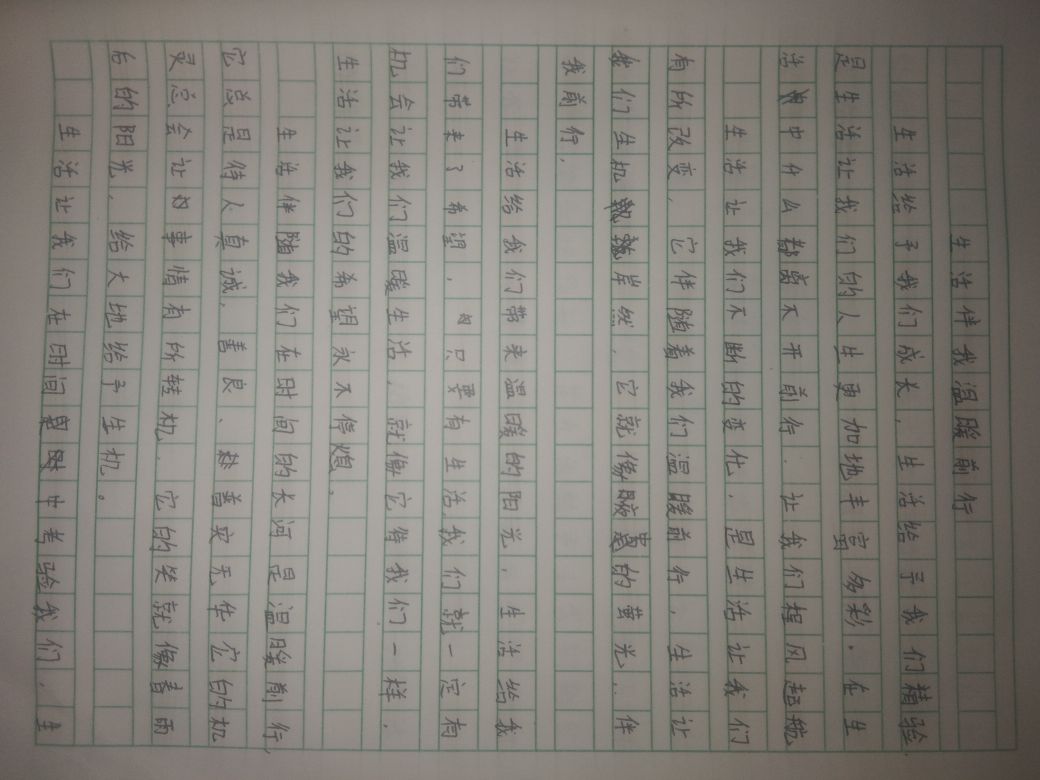 生活伴我温暖前行
生活给予我们成长，生活给予我们精验，
是生活让我们的人生更加地丰富多彩．在生
活中什么都离不开前行．让我们程风起航
生活让我们不断的变化．是生活让我们
有所改变．它伴随着我们温暖前行，生活让
我们生机岸然．它就像的萤光，伴
我前行．
生活给我们带来温暖的阳光，生活给我
们带来了希望．只要有生活我们就一定有
机会让我们温暖生活．就像它待我们一样．
生活让我们的希望永不停熄。
生活伴随我们在时间的长河是温暖前行，
它总是待人真诚．善良、朴实无华它的机
灵总会让事情有所转机．它的笑就像春雨
后的阳光．给大地给予生机。
生活让我们在时间中考验我们．